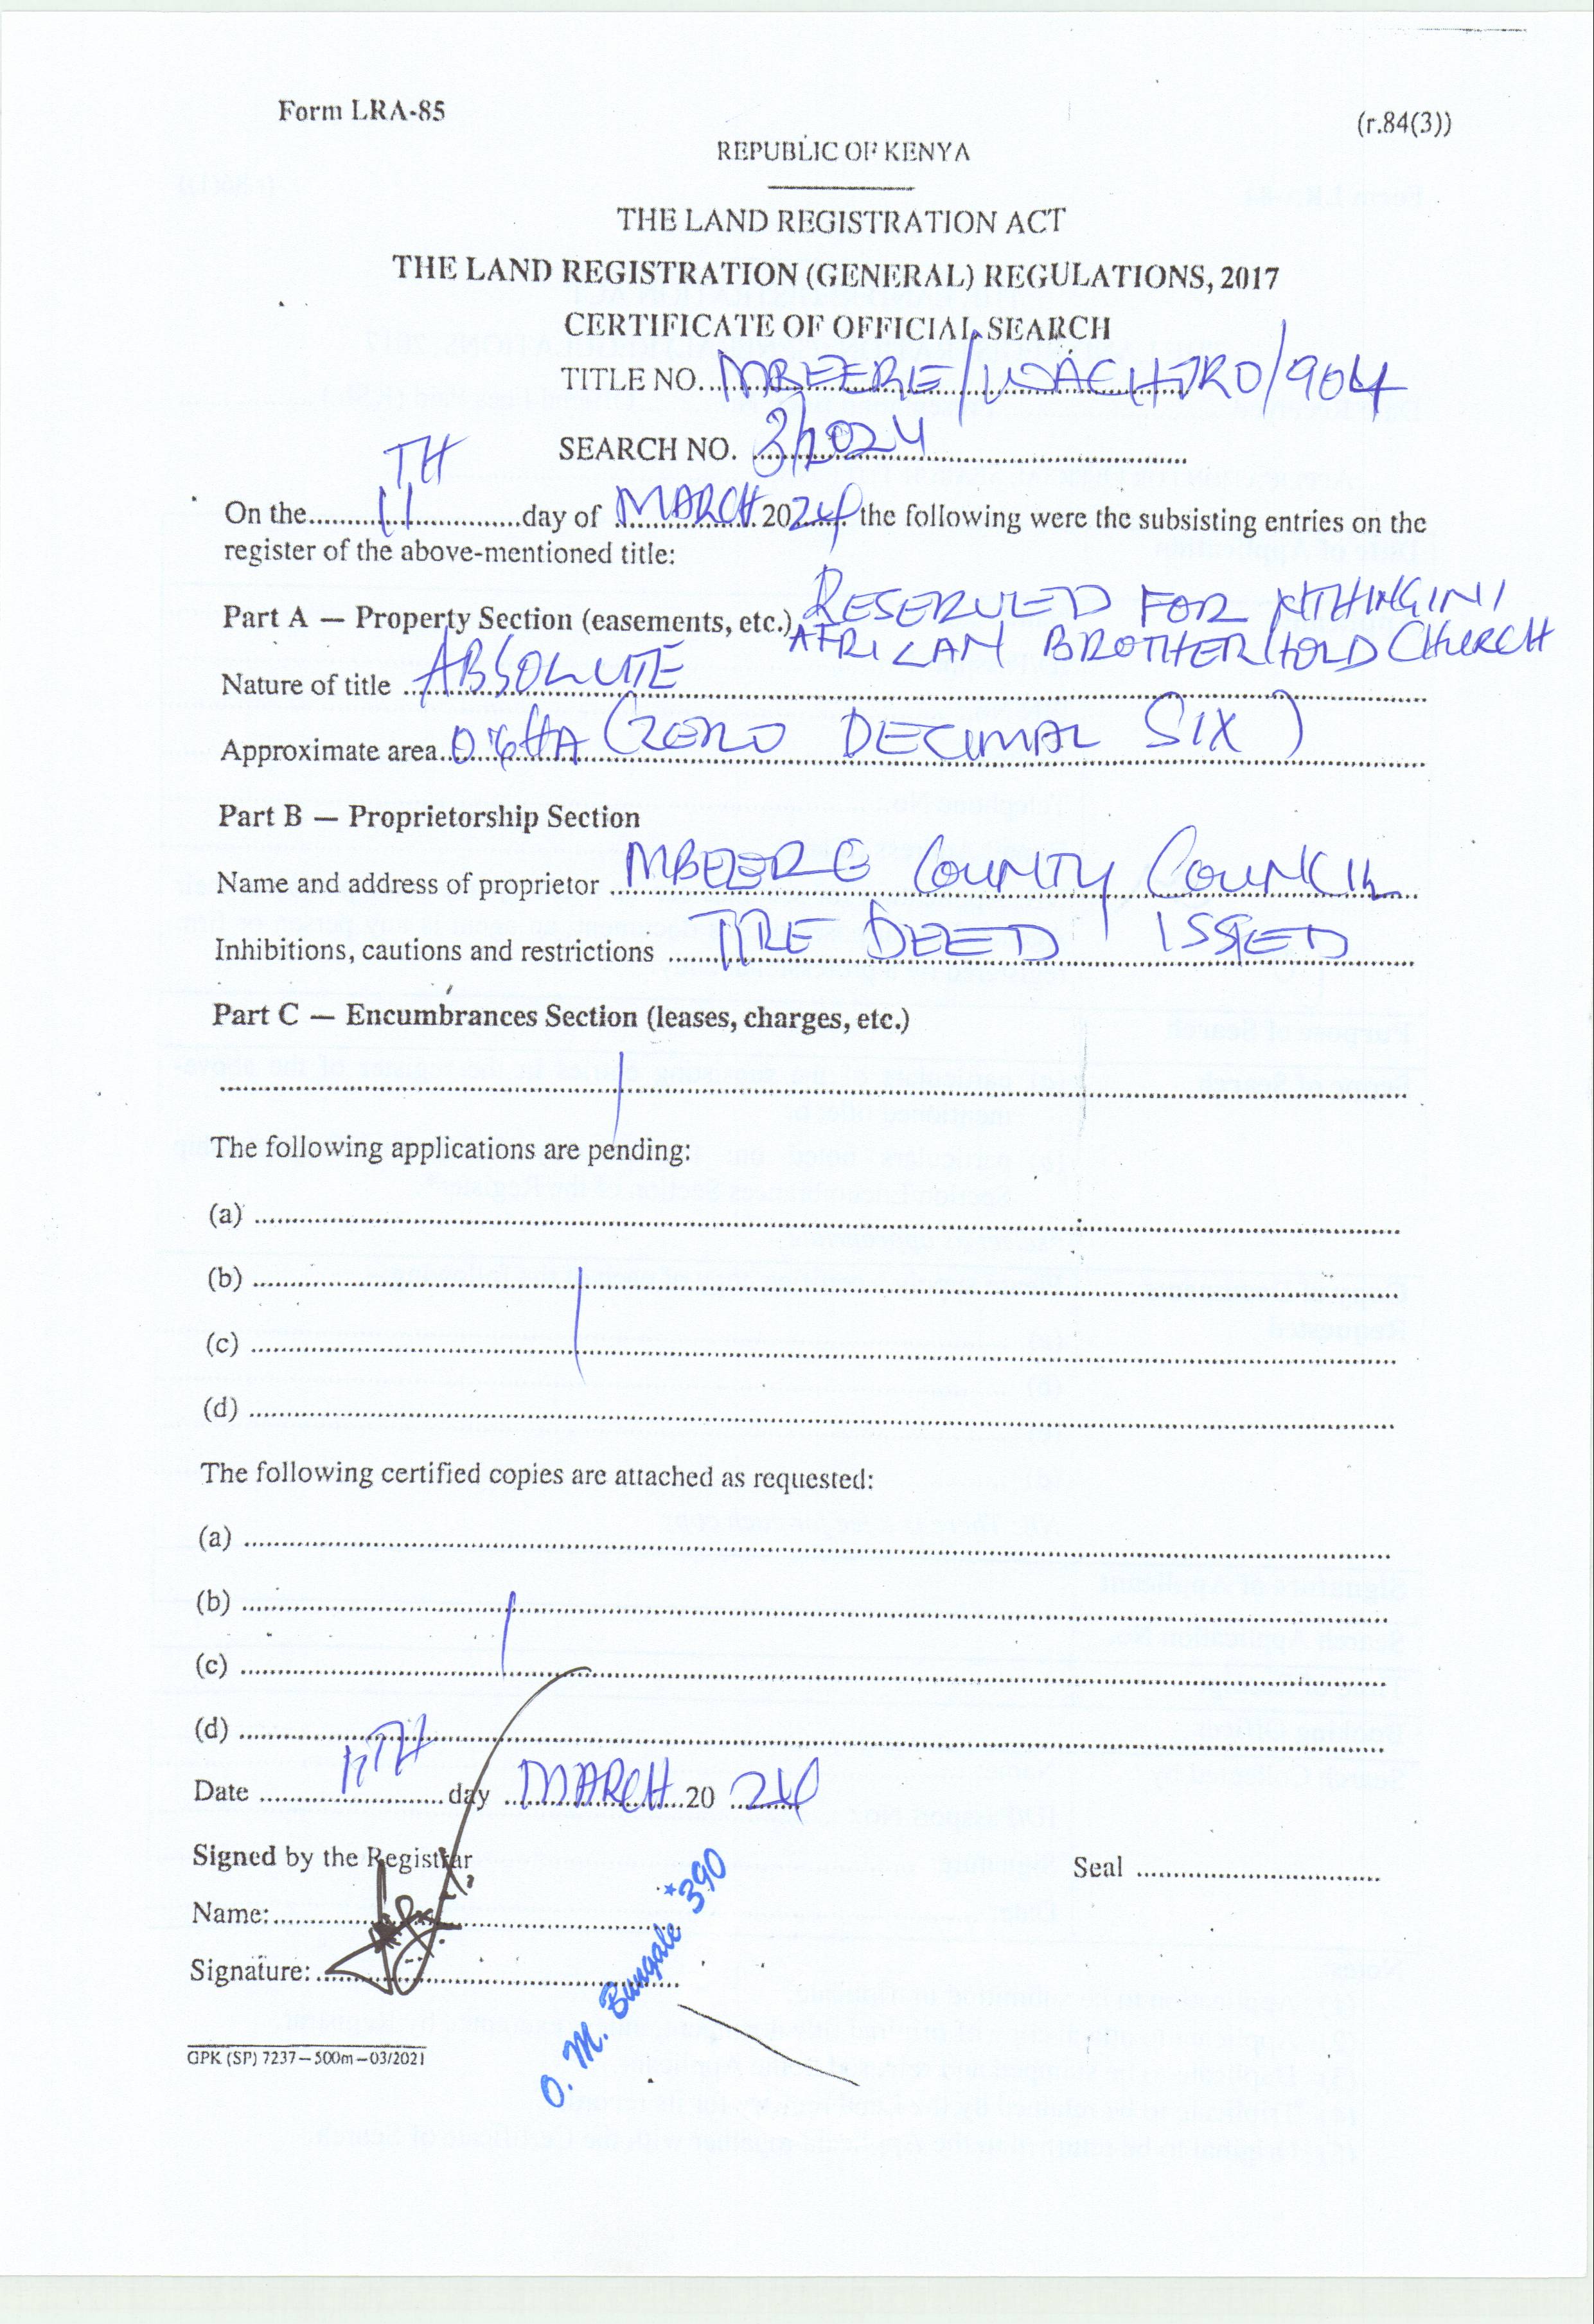 Form LRA-85
(r.84(3))
REPUBLIC OF KENYA
THE LAND REGISTRATION ACT
THE LAND REGISTRATION (GENERAL) REGULATIONS, 2017
CERTIFICATE OF OFFICIAL SEARCH
TITLE NO. MBEERE/WACHORO/904
SEARCH NO. 3/2024
On the 11TH day of MARCH 2024 the following were the subsisting entries on the
register of the above-mentioned title:
Part A — Property Section (easements, etc.) RESERVED FOR KITHINGINI
AFRICAN BROTHERHOLD CHURCH
Nature of title ABSOLUTE
Approximate area 0.6HA (ZERO DECIMAL SIX)
Part B — Proprietorship Section
Name and address of proprietor MBEERE COUNTY COUNCIL
Inhibitions, cautions and restrictions DEED ISSUED
Part C — Encumbrances Section (leases, charges, etc.)
The following applications are pending:
(a)
(b)
(c)
(d)
The following certified copies are attached as requested:
(a)
(b)
(c)
(d)
Date 11TH day MARCH 20 24
Signed by the Registrar
Seal
Name:
Signature:
O. M. Bungale *390
GPK (SP) 7237—500m—03/2021